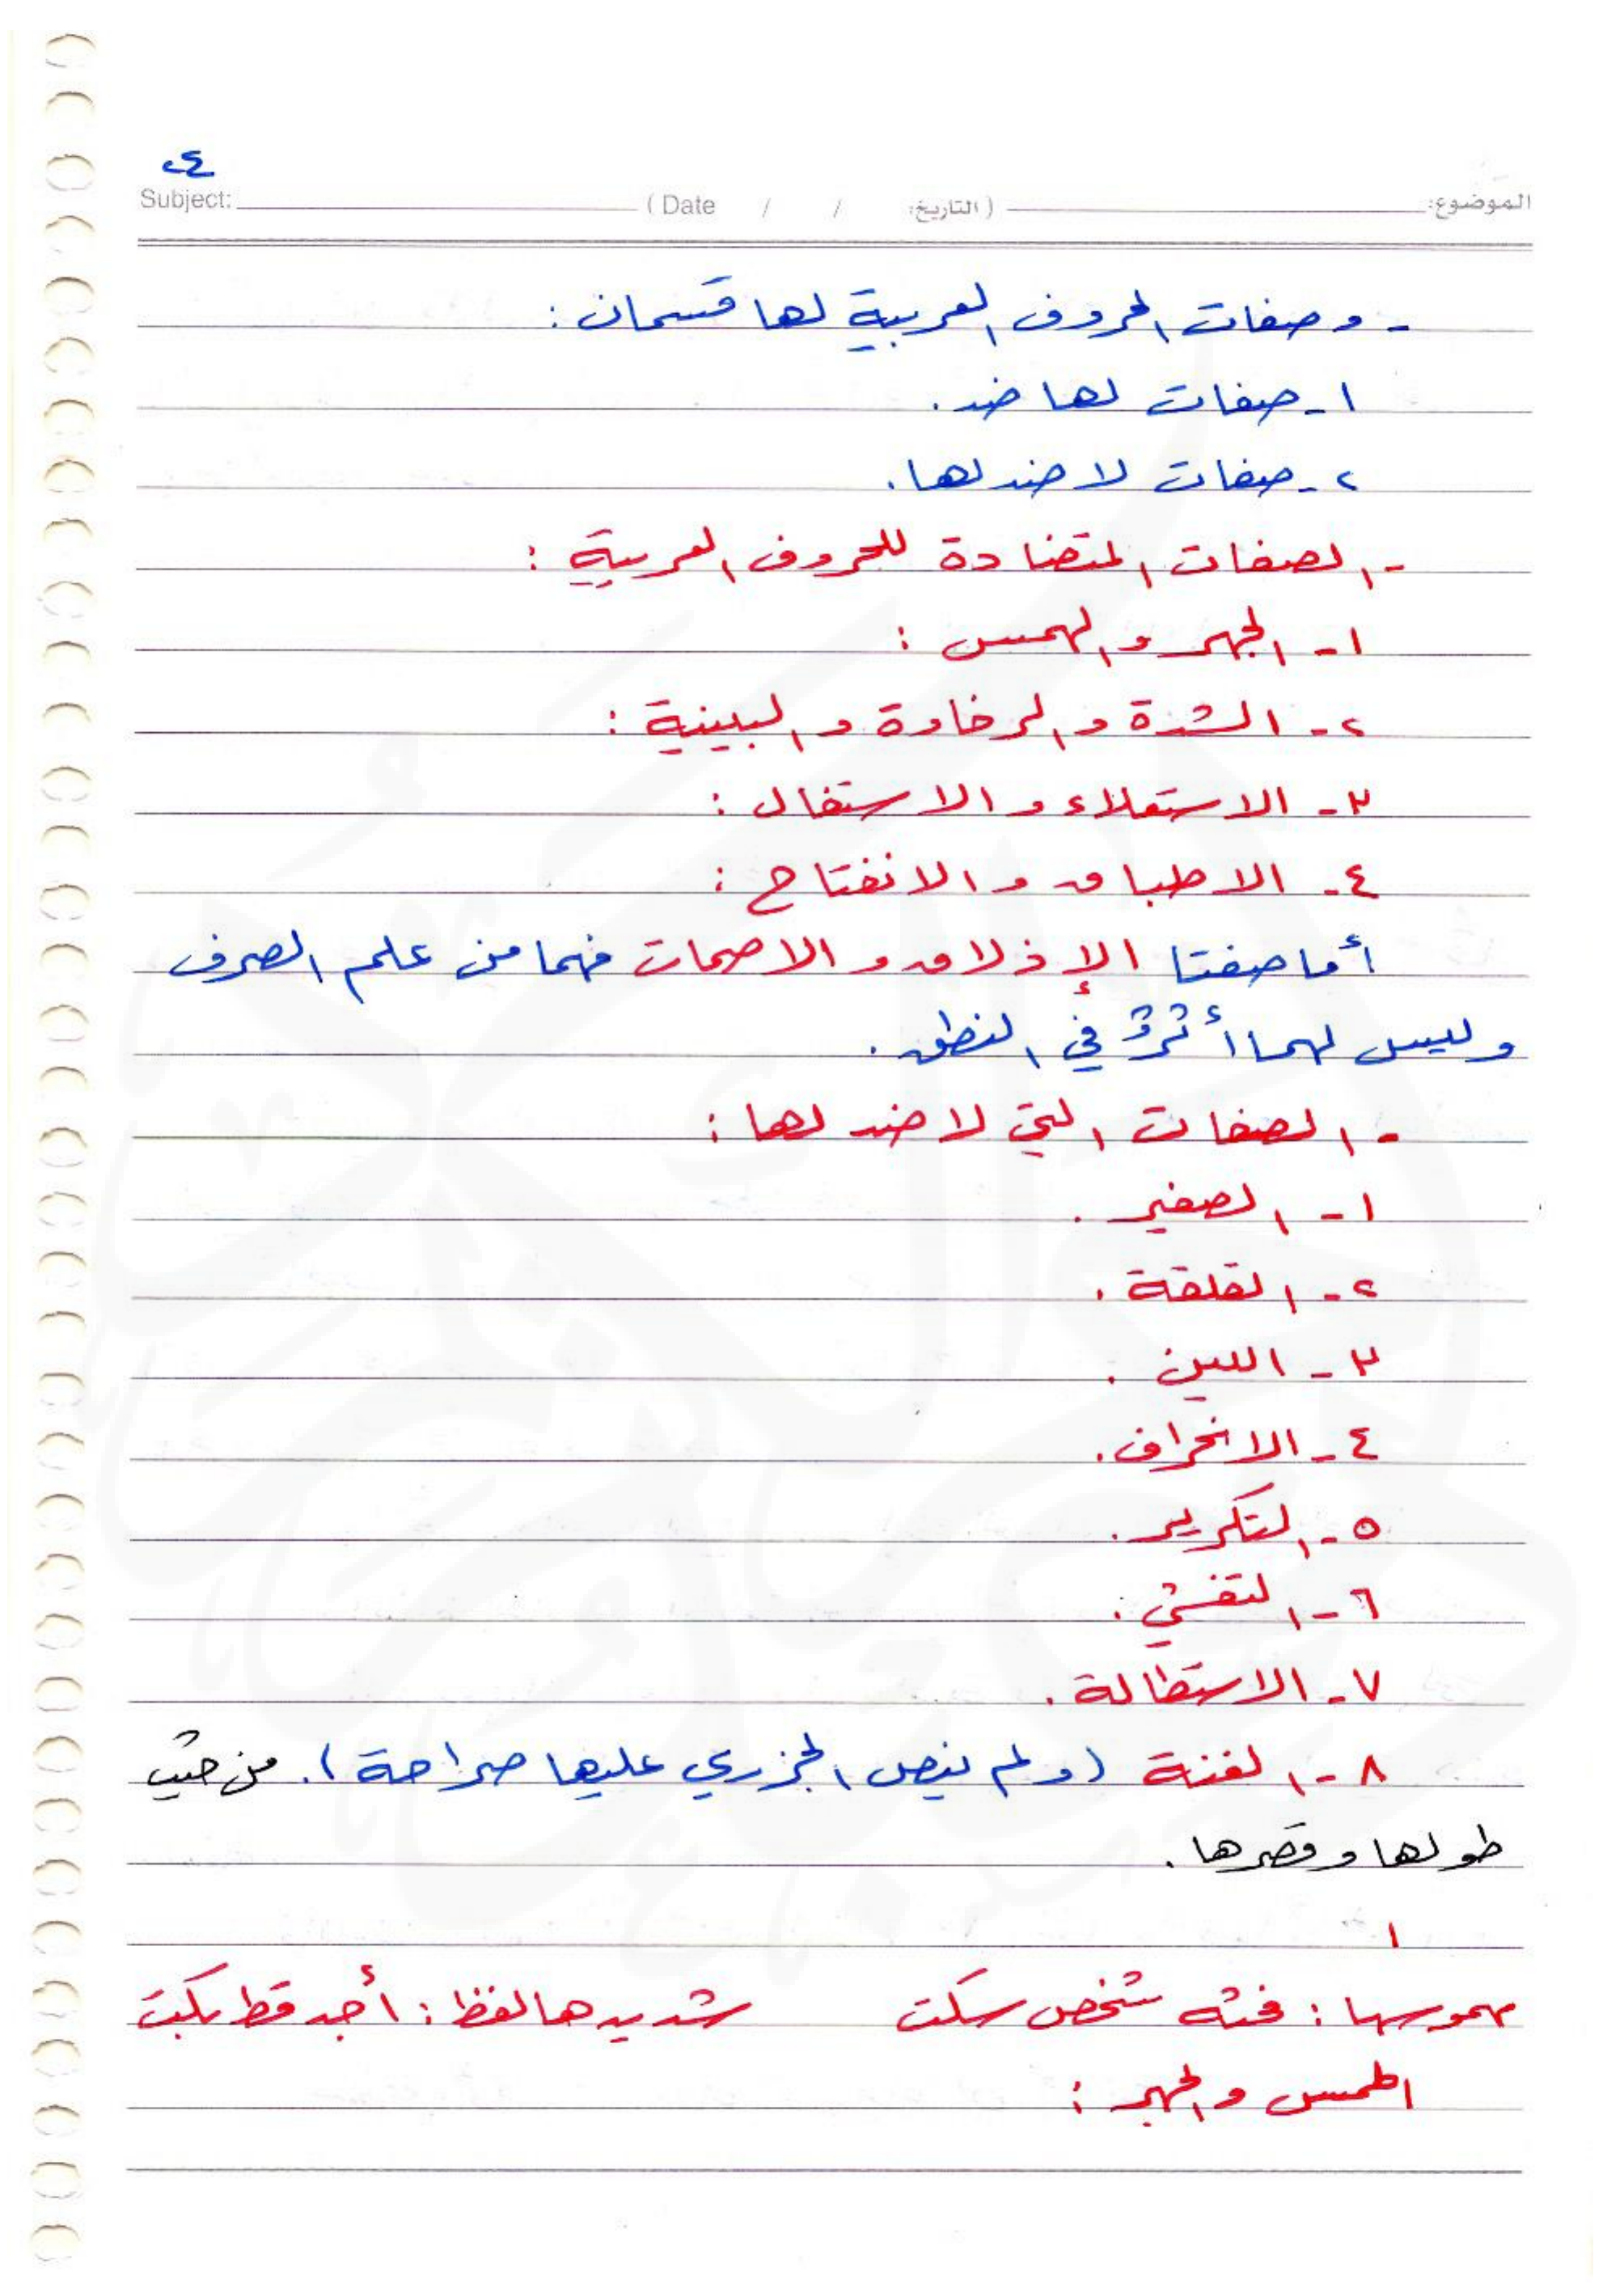 ٢٤
Subject: ( Date / / التاريخ: ) الموضوع:
- وصفات الحروف العربية لها قسمان :
١- صفات لها ضد .
٢- صفات لا ضد لها .
- الصفات المتضادة للحروف العربية :
١- الجهر والهمس :
٢- الشدة والرخاوة والبينية :
٣- الاستعلاء والاستفال :
٤- الاطباق والانفتاح :
أما صفتا الإذلاق والاصمات فهما من علم الصرف
وليس لهما أثرٌ في النطق .
- الصفات التي لا ضد لها :
١- الصفير .
٢- القلقة .
٣- اللين .
٤- الانحراف .
٥- التكرير .
٦- التفشي .
٧- الاستطالة .
٨- الغنة (ولم ينص الجزري عليها صراحة) . من حيث
طولها وقصرها .
١
مهموسها : فحثه شخص سكت شديدها لفظ : أجد قط بكت
الهمس والجهر :